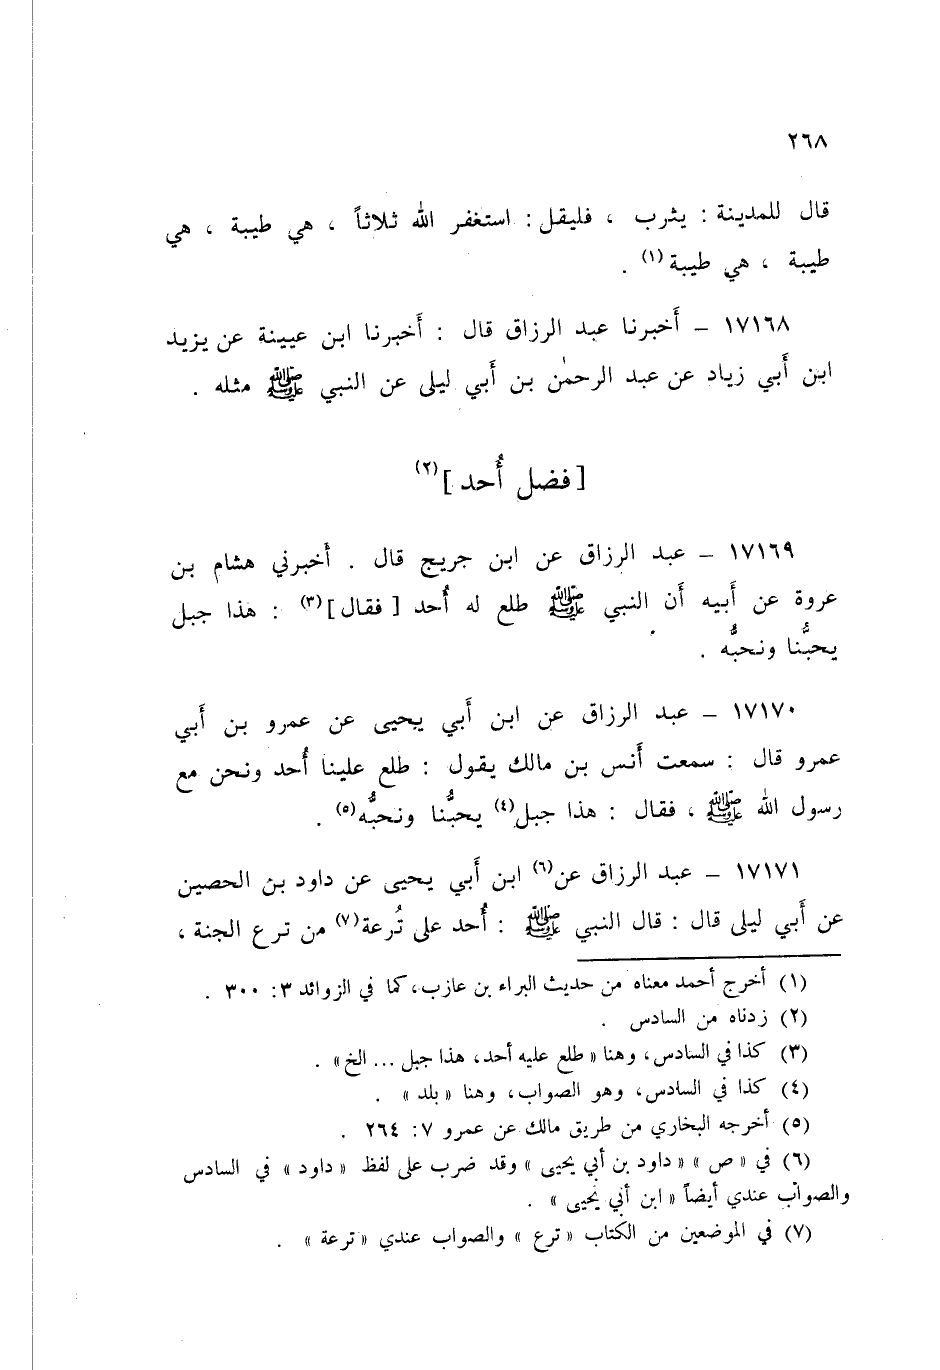 ٢٦٨
قال للمدينة : يثرب ، فليقل : استغفر الله ثلاثاً ، هي طيبة ، هي
طيبة ، هي طيبة (١) .
١٧١٦٨ – أخبرنا عبد الرزاق قال : أخبرنا ابن عيينة عن يزيد
ابن أبي زياد عن عبد الرحمٰن بن أبي ليلى عن النبي ﷺ مثله .
[ فضل أُحد ] (٢)
١٧١٦٩ – عبد الرزاق عن ابن جريج قال . أخبرني هشام بن
عروة عن أبيه أن النبي ﷺ طلع له أُحد [ فقال ] (٣) : هذا جبل
يحبُّنا ونحبُّه .
١٧١٧٠ – عبد الرزاق عن ابن أبي يحيى عن عمرو بن أبي
عمرو قال : سمعت أنس بن مالك يقول : طلع علينا أُحد ونحن مع
رسول الله ﷺ ، فقال : هذا جبل (٤) يحبُّنا ونحبُّه (٥) .
١٧١٧١ – عبد الرزاق عن (٦) ابن أبي يحيى عن داود بن الحصين
عن أبي ليلى قال : قال النبي ﷺ : أُحد على تُرعة (٧) من ترع الجنة ،
(١) أخرج أحمد معناه من حديث البراء بن عازب، كما في الزوائد ٣: ٣٠٠ .
(٢) زدناه من السادس .
(٣) كذا في السادس، وهنا « طلع عليه أحد، هذا جبل ... الخ » .
(٤) كذا في السادس، وهو الصواب، وهنا « بلد » .
(٥) أخرجه البخاري من طريق مالك عن عمرو ٧: ٢٦٤ .
(٦) في « ص » « داود بن أبي يحيى » وقد ضرب على لفظ « داود » في السادس
والصواب عندي أيضاً « ابن أبي يحيى » .
(٧) في الموضعين من الكتاب « ترع » والصواب عندي « ترعة » .